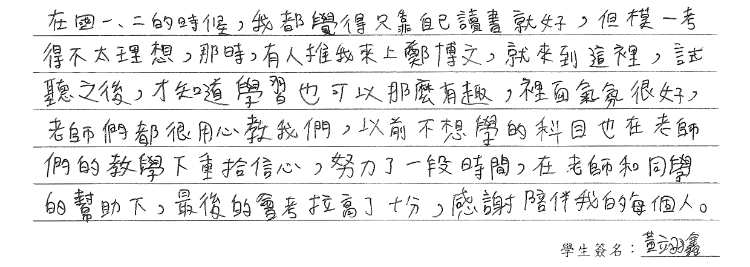 在國一、二的時候，我都覺得只靠自己讀書就好，但模一考
得不太理想，那時，有人推我來上鄭博文，就來到這裡，試
聽之後，才知道學習也可以那麼有趣，裡面氣氛很好，
老師們都很用心教我們，以前不想學的科目也在老師
們的教學下重拾信心，努力了一段時間，在老師和同學
的幫助下，最後的會考拉高了十分，感謝陪伴我的每個人。
學生簽名：黃翊鑫